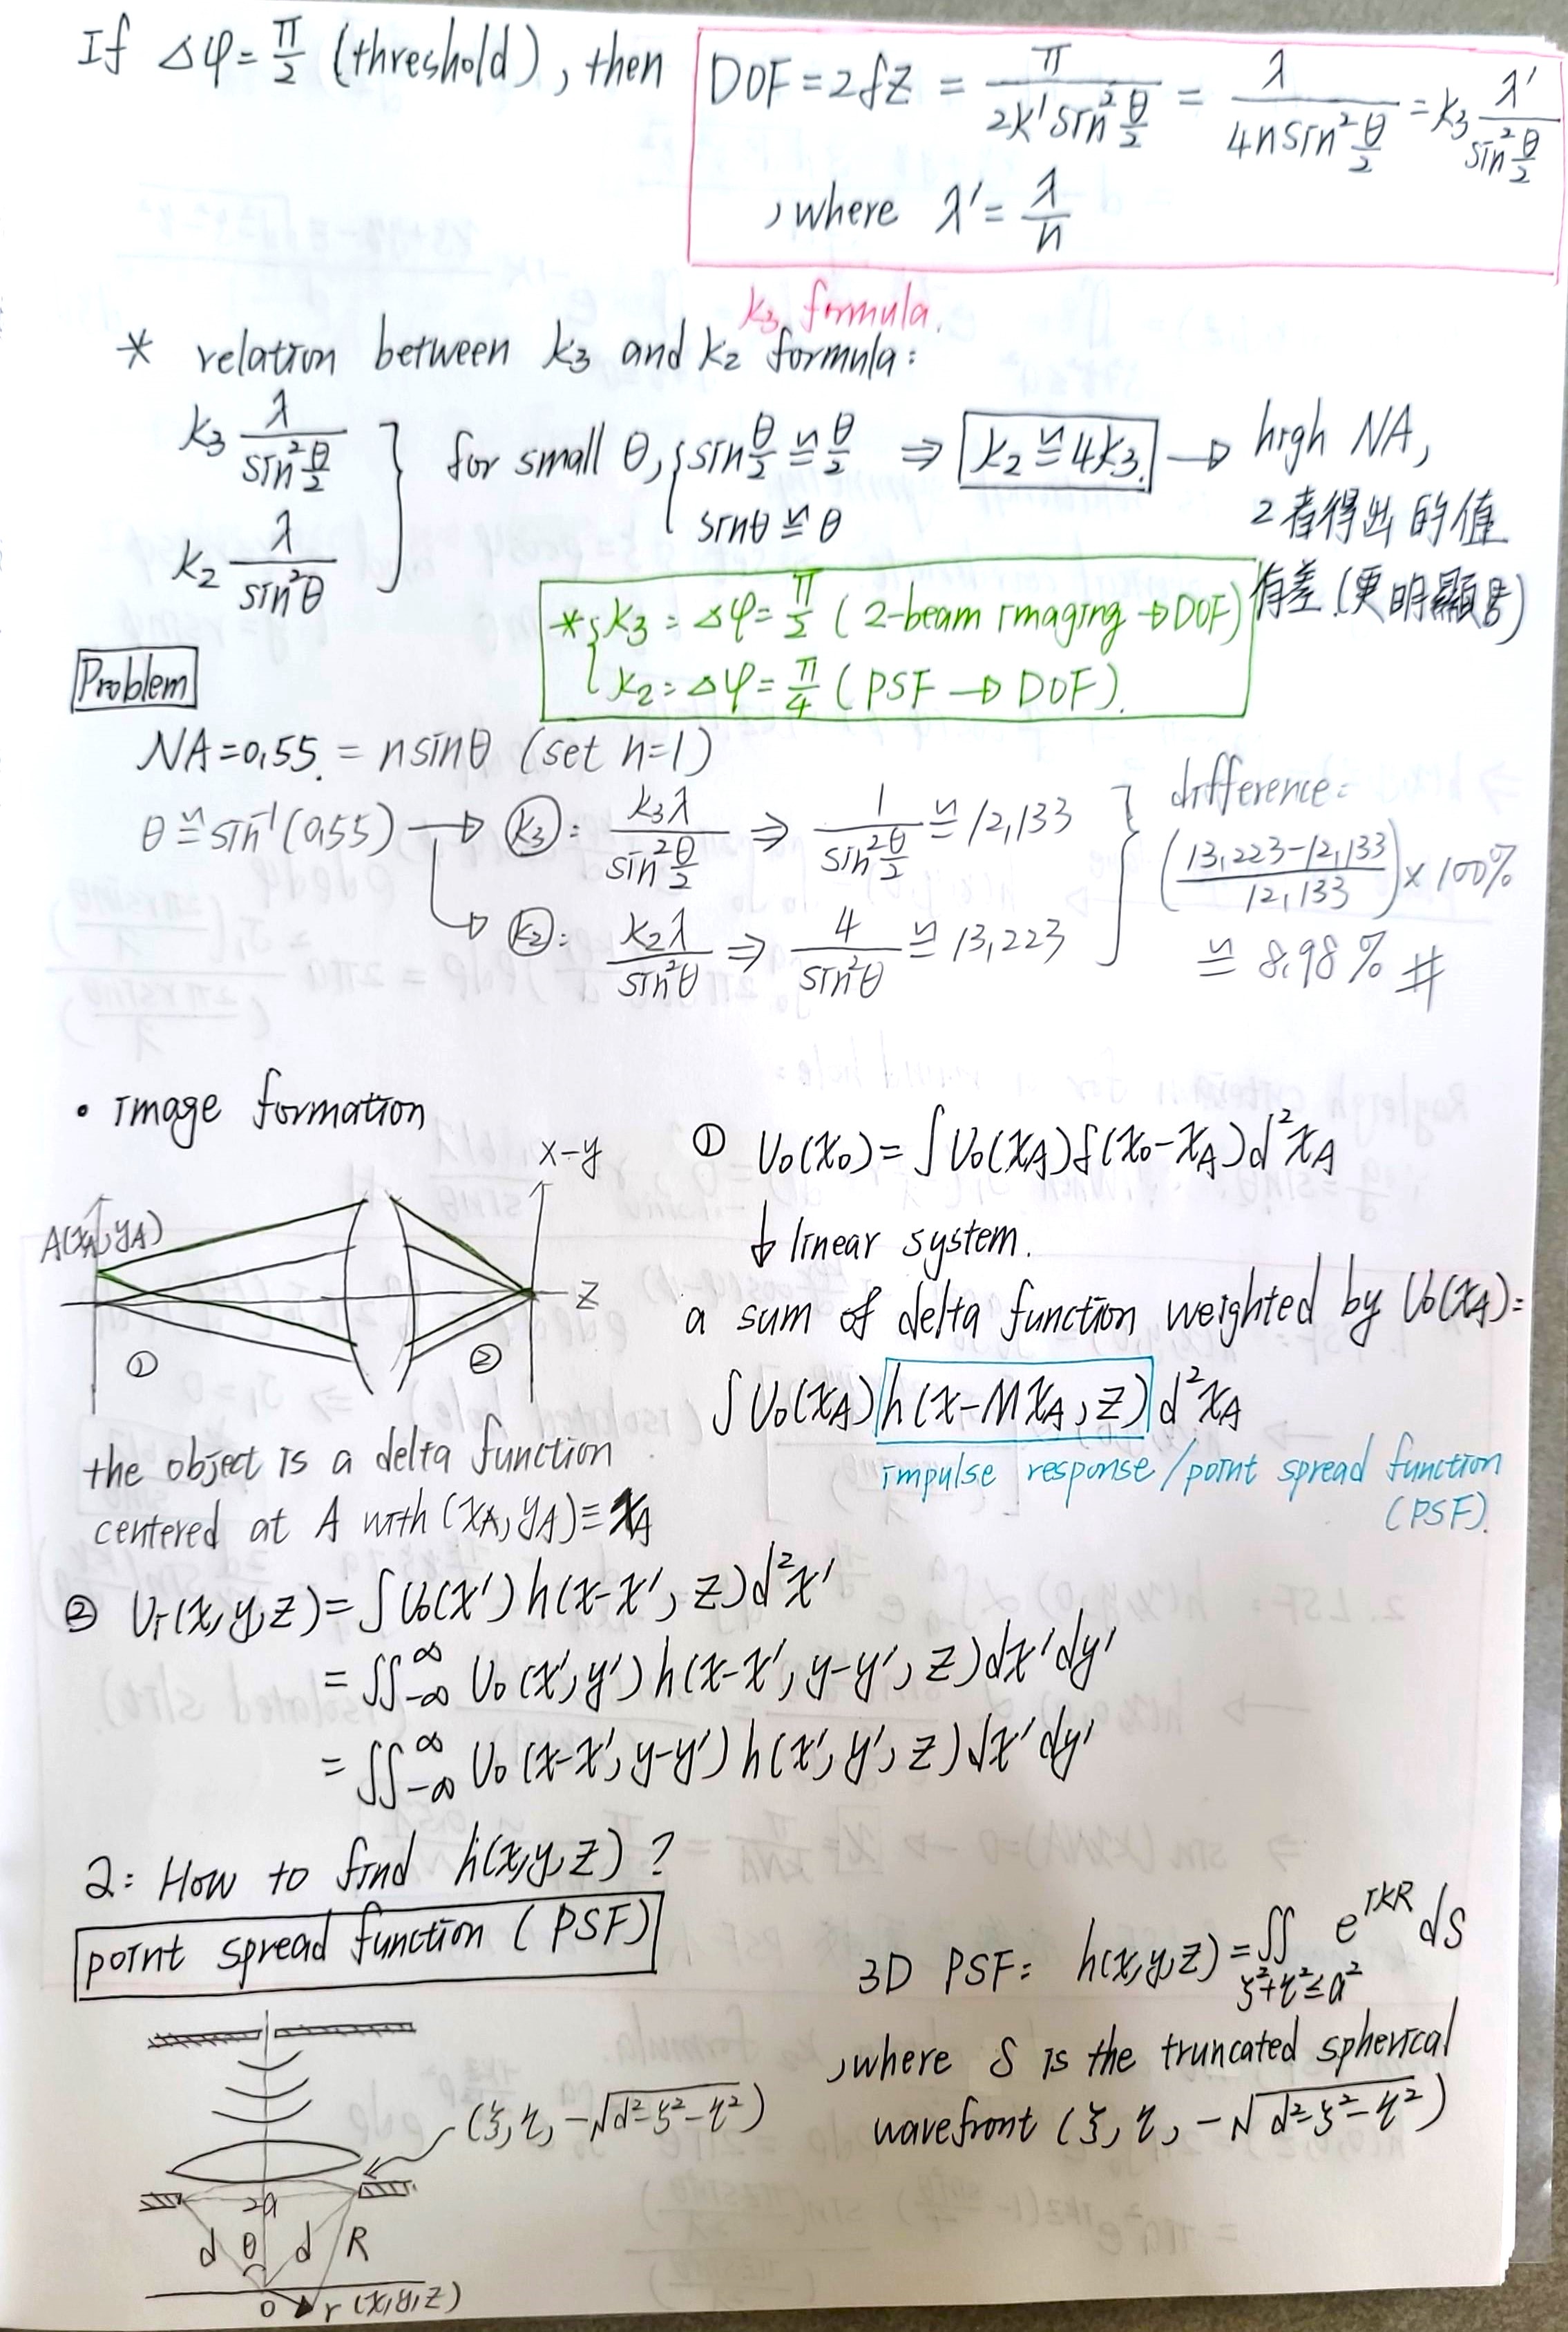 If Δφ = π/2 (threshold), then DOF = 2δZ = π/(2k' sin² θ/2) = λ/(4n sin² θ/2) = k₃ λ'/(sin² θ/2)
, where λ' = λ/n
k₃ formula.
* relation between k₃ and k₂ formula:
k₃ λ/(sin² θ/2)
k₂ λ/(sin²θ)
} for small θ, { sin θ/2 ≌ θ/2
sinθ ≌ θ
⇒ k₂ ≌ 4k₃. → high NA,
2者得出的值
有差(更明顯的)
* { k₃ : Δφ = π/2 (2-beam imaging → DOF)
k₂ : Δφ = π/4 (PSF → DOF).
Problem
NA = 0.55. = n sinθ (set n=1)
θ ≌ sin⁻¹(0.55) → k₃ : k₃λ/(sin² θ/2) ⇒ 1/(sin² θ/2) ≌ 12.133
→ k₂ : k₂λ/(sin²θ) ⇒ 4/(sin²θ) ≌ 13.223
} difference:
((13.223-12.133)/12.133) × 100%
≌ 8.98% #
• image formation
x-y
A(xA, yA)
Z
①
②
the object is a delta function
centered at A with (xA, yA) ≡ xA
① U₀(x₀) = ∫ U₀(xA) δ(x₀-xA) d²xA
↓ linear system.
a sum of delta function weighted by U₀(xA) =
∫ U₀(xA) h(x-MxA, z) d²xA
impulse response/point spread function
(PSF).
② Ui(x,y,z) = ∫ U₀(x') h(x-x', z) d²x'
= ∬₋∞^∞ U₀(x',y') h(x-x', y-y', z) dx'dy'
= ∬₋∞^∞ U₀(x-x', y-y') h(x', y', z) dx'dy'
Q: How to find h(x,y,z) ?
point spread function (PSF)
(ξ, η, -√(d²-ξ²-η²))
2a
d θ d R
O r (x,y,z)
3D PSF: h(x,y,z) = ∬ξ²+η²≤a² e^{ikR} dS
, where S is the truncated spherical
wavefront (ξ, η, -√(d²-ξ²-η²))